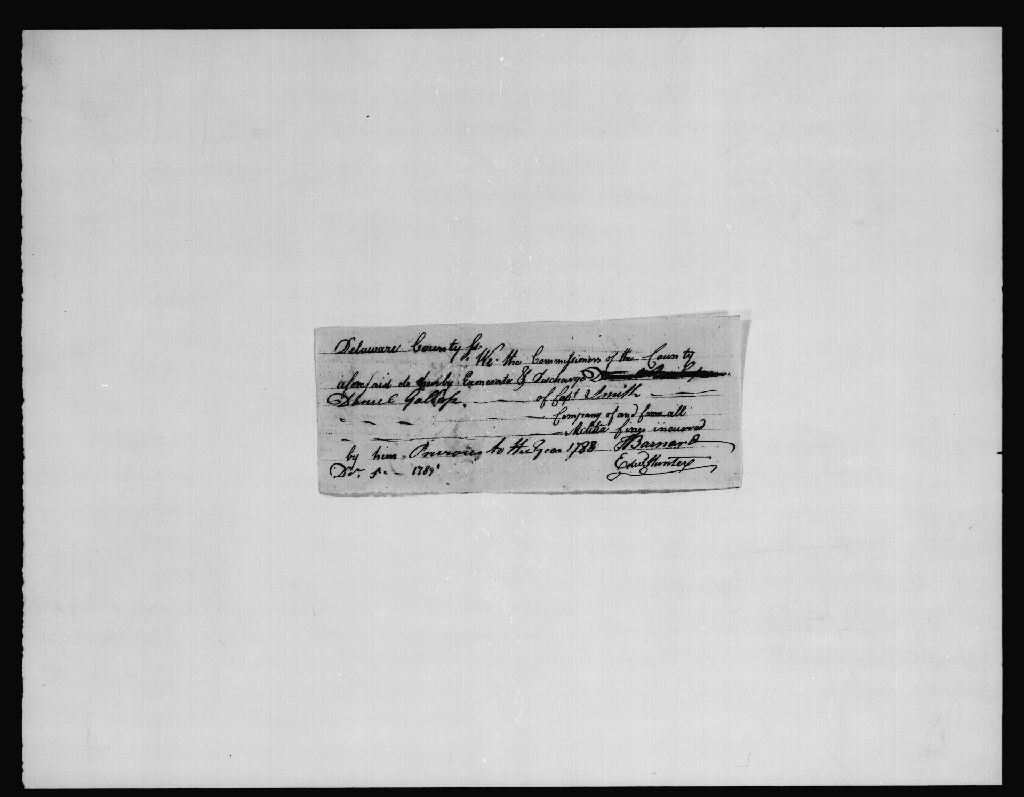 Delaware County ss.
We the Commissioners of the County
aforesaid do hereby Exonerate & Discharge
Daniel Gallap. of Capt Smith
Company of and from all
Militia fines incurred
by him Previous to the Year 1788 Barnard
Decr. 5. 1789 Edwd Hunter